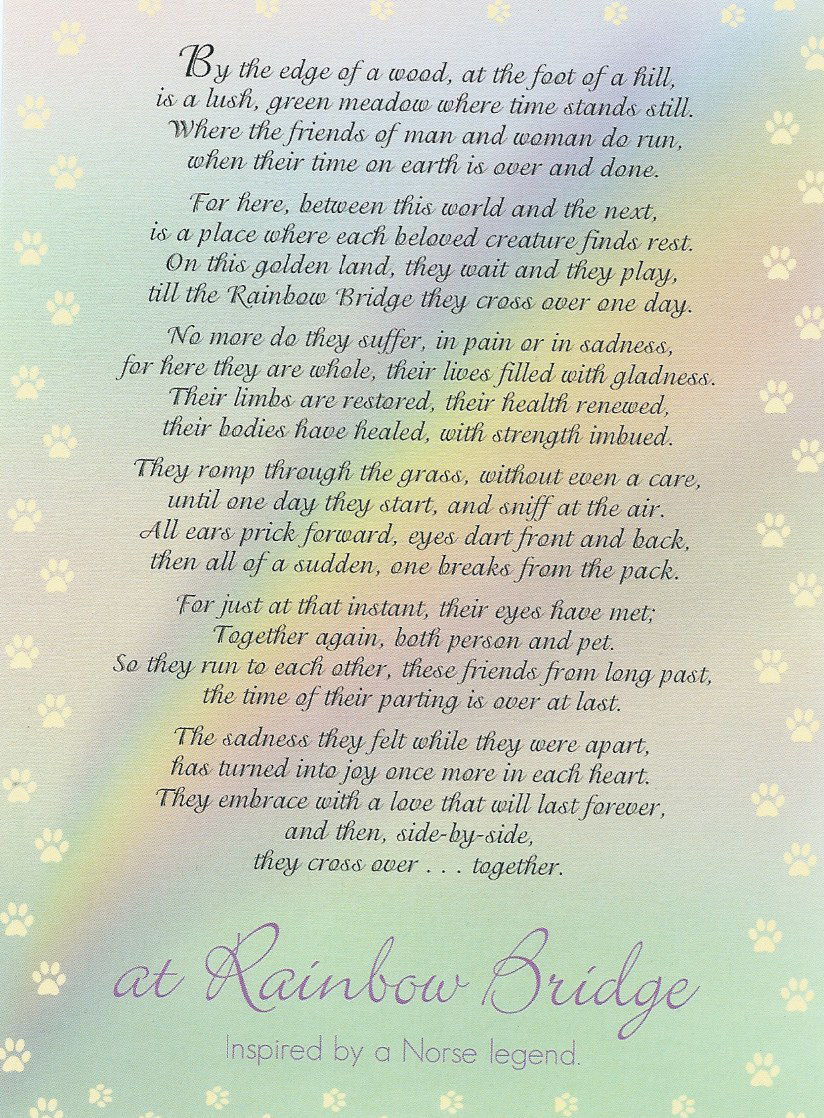 By the edge of a wood, at the foot of a hill,
is a lush, green meadow where time stands still.
Where the friends of man and woman do run,
when their time on earth is over and done.
For here, between this world and the next,
is a place where each beloved creature finds rest.
On this golden land, they wait and they play,
till the Rainbow Bridge they cross over one day.
No more do they suffer, in pain or in sadness,
for here they are whole, their lives filled with gladness.
Their limbs are restored, their health renewed,
their bodies have healed, with strength imbued.
They romp through the grass, without even a care,
until one day they start, and sniff at the air.
All ears prick forward, eyes dart front and back,
then all of a sudden, one breaks from the pack.
For just at that instant, their eyes have met;
Together again, both person and pet.
So they run to each other, these friends from long past,
the time of their parting is over at last.
The sadness they felt while they were apart,
has turned into joy once more in each heart.
They embrace with a love that will last forever,
and then, side-by-side,
they cross over . . . together.
at Rainbow Bridge
Inspired by a Norse legend.